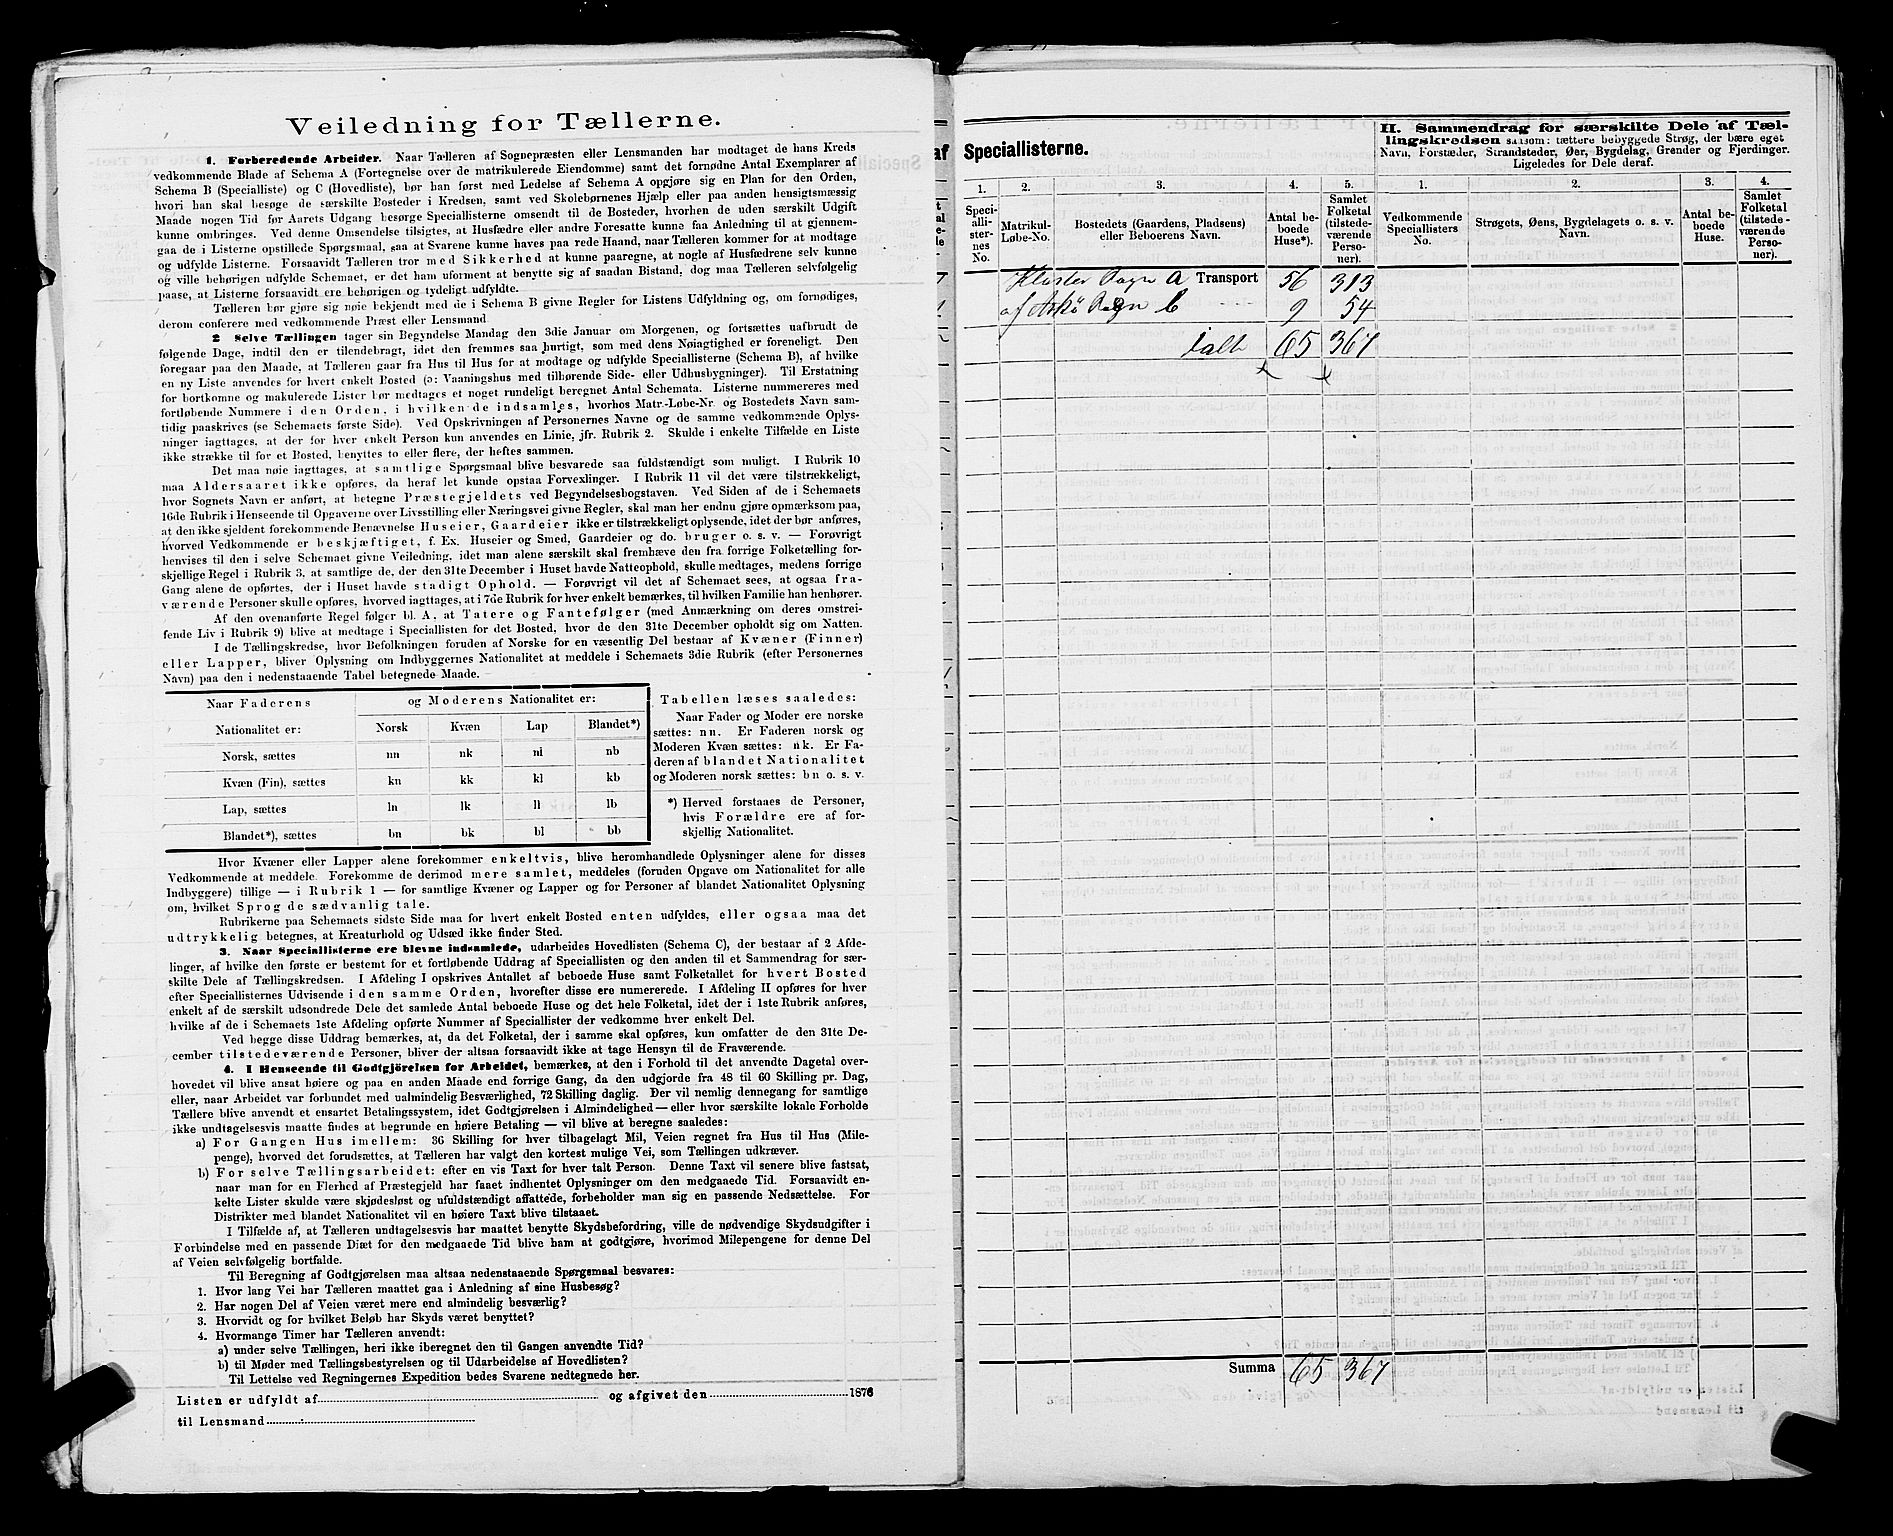 Veiledning for Tællerne.
1. Forberedende Arbeider. Naar Tælleren af Sognepræsten eller Lensmanden har modtaget de hans Kreds
vedkommende Blade af Schema A (Fortegnelse over de matrikulerede Eiendomme) samt det fornødne Antal Exemplarer af
Schema B (Specialliste) og C (Hovedliste), bør han først med Ledelse af Schema A opgjøre sig en Plan for den Orden,
hvori han skal besøge de særskilte Bosteder i Kredsen, samt ved Skolebørnenes Hjælp eller paa anden hensigtsmæssig
Maade nogen Tid før Aarets Udgang besørge Speciallisterne omsendt til de Bosteder, hvorhen de uden særskilt Udgift
kunne ombringes. Ved denne Omsendelse tilsigtes, at Husfædre eller andre Foresatte kunne faa Anledning til at gjennem-
gaa de i Listerne opstillede Spørgsmaal, saa at Svarene kunne haves paa rede Haand, naar Tælleren kommer for at modtage
og udfylde Listerne. Forsaavidt Tælleren tror med Sikkerhed at kunne paaregne, at nogle af Husfædrene selv kunne
og ville behørigen udfylde Schemaet, er det ham uforment at benytte sig af saadan Bistand, dog maa Tælleren selvfølgelig
paase, at Listerne forsaavidt ere behørigen og tydeligt udfyldte.
Tælleren bør gjøre sig nøie bekjendt med de i Schema B givne Regler for Listens Udfyldning og, om fornødiges,
derom conferere med vedkommende Præst eller Lensmand.
2 Selve Tællingen tager sin Begyndelse Mandag den 3die Januar om Morgenen, og fortsættes uafbrudt de
følgende Dage, indtil den er tilendebragt, idet den fremmes saa hurtigt, som med dens Nøiagtighed er foreneligt. Den
foregaar paa den Maade, at Tælleren gaar fra Hus til Hus for at modtage og udfylde Speciallisterne (Schema B), af hvilke
en ny Liste anvendes for hvert enkelt Bosted (ɔ: Vaaningshus med tilhørende Side- eller Udhusbygninger). Til Erstatning
for bortkomne og makulerede Lister bør medtages et noget rundeligt beregnet Antal Schemata. Listerne nummereres med
fortløbende Nummere i den Orden, i hvilken de indsamles, hvorhos Matr.-Løbe-Nr. og Bostedets Navn sam-
tidig paaskrives (se Schemaets første Side). Ved Opskrivningen af Personernes Navne og de samme vedkommende Oplys-
ninger iagttages, at der for hver enkelt Person kun anvendes en Linie, jfr. Rubrik 2. Skulde i enkelte Tilfælde en Liste
ikke strække til for et Bosted, benyttes to eller flere, der heftes sammen.
Det maa nøie iagttages, at samtlige Spørgsmaal blive besvarede saa fuldstændigt som muligt. I Rubrik 10
maa Aldersaaret ikke opføres, da heraf let kunde opstaa Forvexlinger. I Rubrik 11 vil det være tilstrækkeligt,
hvor Sognets Navn er anført, at betegne Præstegjeldets ved Begyndelsesbogstaven. Ved Siden af de i Schemaets
16de Rubrik i Henseende til Opgaverne over Livsstilling eller Næringsvei givne Regler, skal man her endnu gjøre opmærksom paa,
at den ikke sjeldent forekommende Benævnelse Huseier, Gaardeier ikke er tilstrækkeligt oplysende, idet der bør anføres,
hvorved Vedkommende er beskjæftiget, f. Ex. Huseier og Smed, Gaardeier og do. bruger o. s. v. — Forøvrigt
henvises til den i selve Schemaet givne Veiledning, idet man alene særskilt skal fremhæve den fra forrige Folketælling for-
skjellige Regel i Rubrik 3, at samtlige de, der den 31te December i Huset havde Natteophold, skulle medtages, medens forrige
Gang alene de opførtes, der i Huset havde stadigt Ophold. — Forøvrigt vil det af Schemaet sees, at ogsaa fra-
værende Personer skulle opføres, hvorved iagttages, at i 7de Rubrik for hver enkelt bemærkes, til hvilken Familie han henhører.
Af den ovenanførte Regel følger bl. A. at Tatere og Fantefølger (med Anmærkning om deres omstrei-
fende Liv i Rubrik 9) blive at medtage i Speciallisten for det Bosted, hvor de den 31te December opholdt sig om Natten.
I de Tællingskredse, hvor Befolkningen foruden af Norske for en væsentlig Del bestaar af Kvæner (Finner)
eller Lapper, bliver Oplysning om Indbyggernes Nationalitet at meddele i Schemaets 3die Rubrik (efter Personernes
Navn) paa den i nedenstaaende Tabel betegnede Maade.
Naar Faderens og Moderens Nationalitet er:
Nationalitet er: Norsk Kvæn Lap Blandet*)
Norsk, sættes nn nk nl nb
Kvæn (Fin), sættes kn kk kl kb
Lap, sættes ln lk ll lb
Blandet*), sættes bn bk bl bb
Tabellen læses saaledes:
Naar Fader og Moder ere norske
sættes: nn. Er Faderen norsk og
Moderen Kvæn sættes: nk. Er Fa-
deren af blandet Nationalitet
og Moderen norsk sættes: bn o. s. v.
*) Herved forstaaes de Personer,
hvis Forældre ere af for-
skjellig Nationalitet.
Hvor Kvæner eller Lapper alene forekommer enkeltvis, blive heromhandlede Oplysninger alene for disses
Vedkommende at meddele. Forekomme de derimod mere samlet, meddeles (foruden Opgave om Nationalitet for alle
Indbyggere) tillige — i Rubrik 1 — for samtlige Kvæner og Lapper og for Personer af blandet Nationalitet Oplysning
om, hvilket Sprog de sædvanlig tale.
Rubrikerne paa Schemaets sidste Side maa for hvert enkelt Bosted enten udfyldes, eller ogsaa maa det
udtrykkelig betegnes, at Kreaturhold og Udsæd ikke finder Sted.
3. Naar Speciallisterne ere blevne indsamlede, udarbeides Hovedlisten (Schema C), der bestaar af 2 Afde-
linger, af hvilke den første er bestemt for et fortløbende Uddrag af Speciallisten og den anden til et Sammendrag for sær-
skilte Dele af Tællingskredsen. I Afdeling I opskrives Antallet af beboede Huse samt Folketallet for hvert Bosted
efter Speciallisternes Udvisende i den samme Orden, hvorefter disse ere numererede. I Afdeling II opføres for hver
enkelt af de særskilt udsondrede Dele det samlede Antal beboede Huse og det hele Folketal, idet der i 1ste Rubrik anføres,
hvilke af de i Schemaets 1ste Afdeling opførte Nummer af Speciallister der vedkomme hver enkelt Del.
Ved begge disse Uddrag bemærkes, at, da det Folketal, der i samme skal opføres, kun omfatter de den 31te De-
cember tilstedeværende Personer, bliver der altsaa forsaavidt ikke at tage Hensyn til de Fraværende.
4. I Henseende til Godtgjörelsen for Arbeidet, bemærkes, at den i Forhold til det anvendte Dagetal over-
hovedet vil blive ansat høiere og paa en anden Maade end forrige Gang, da den udgjorde fra 48 til 60 Skilling pr. Dag,
eller, naar Arbeidet var forbundet med ualmindelig Besværlighed, 72 Skilling daglig. Der vil nemlig dennegang for samtlige
Tællere blive anvendt et ensartet Betalingssystem, idet Godtgjørelsen i Almindelighed — eller hvor særskilte lokale Forholde
ikke undtagelsesvis maatte findes at begrunde en høiere Betaling — vil blive at beregne saaledes:
a) For Gangen Hus imellem: 36 Skilling for hver tilbagelagt Mil, Veien regnet fra Hus til Hus (Mile-
penge), hvorved det forudsættes, at Tælleren har valgt den kortest mulige Vei, som Tællingen udkræver.
b) For selve Tællingsarbeidet: efter en vis Taxt for hver talt Person. Denne Taxt vil senere blive fastsat,
naar man for en Flerhed af Præstegjeld har faaet indhentet Oplysninger om den medgaaede Tid. Forsaavidt en-
kelte Lister skulde være skjødesløst og ufuldstændigt affattede, forbeholder man sig en passende Nedsættelse. For
Distrikter med blandet Nationalitet vil en høiere Taxt blive tilstaaet.
I Tilfælde af, at Tælleren undtagelsesvis har maattet benytte Skydsbefordring, ville de nødvendige Skydsudgifter i
Forbindelse med en passende Diæt for den medgaaede Tid blive ham at godtgjøre, hvorimod Milepengene for denne Del
af Veien selvfølgelig bortfalde.
Til Beregning af Godtgjørelsen maa altsaa nedenstaaende Spørgsmaal besvares:
1. Hvor lang Vei har Tælleren maattet gaa i Anledning af sine Husbesøg?
2. Har nogen Del af Veien været mere end almindelig besværlig?
3. Hvorvidt og for hvilket Beløb har Skyds været benyttet?
4. Hvormange Timer har Tælleren anvendt:
a) under selve Tællingen, heri ikke iberegnet den til Gangen anvendte Tid?
b) til Møder med Tællingsbestyrelsen og til Udarbeidelse af Hovedlisten?
Til Lettelse ved Regningernes Expedition bedes Svarene nedtegnede her.
Listen er udfyldt af og afgivet den 1876
til Lensmand
af
Speciallisterne.
II. Sammendrag for særskilte Dele af Tæl-
lingskredsen saasom: tættere bebyggede Strøg, der bære eget
Navn, Forstæder, Strandsteder, Øer, Bygdelag, Grender og Fjerdinger.
Ligeledes for Dele deraf.
1. 2. 3. 4. 5. 1. 2. 3. 4.
Speci-
alli-
ster-
nes
No.
Matrikul-
Løbe-No.
Bostedets (Gaardens, Pladsens)
eller Beboerens Navn.
Antal be-
boede
Huse*).
Samlet
Folketal
(tilstede-
værende
Perso-
ner).
Vedkommende
Speciallisters
No.
Strøgets, Øens, Bygdelagets o. s. v.
Navn.
Antal be-
boede
Huse.
Samlet
Folketal
(tilstede-
værende
Perso-
ner).
Sogn A Transport 56 313
af Sogn C 9 54
ialt 65 367
Summa 65 367